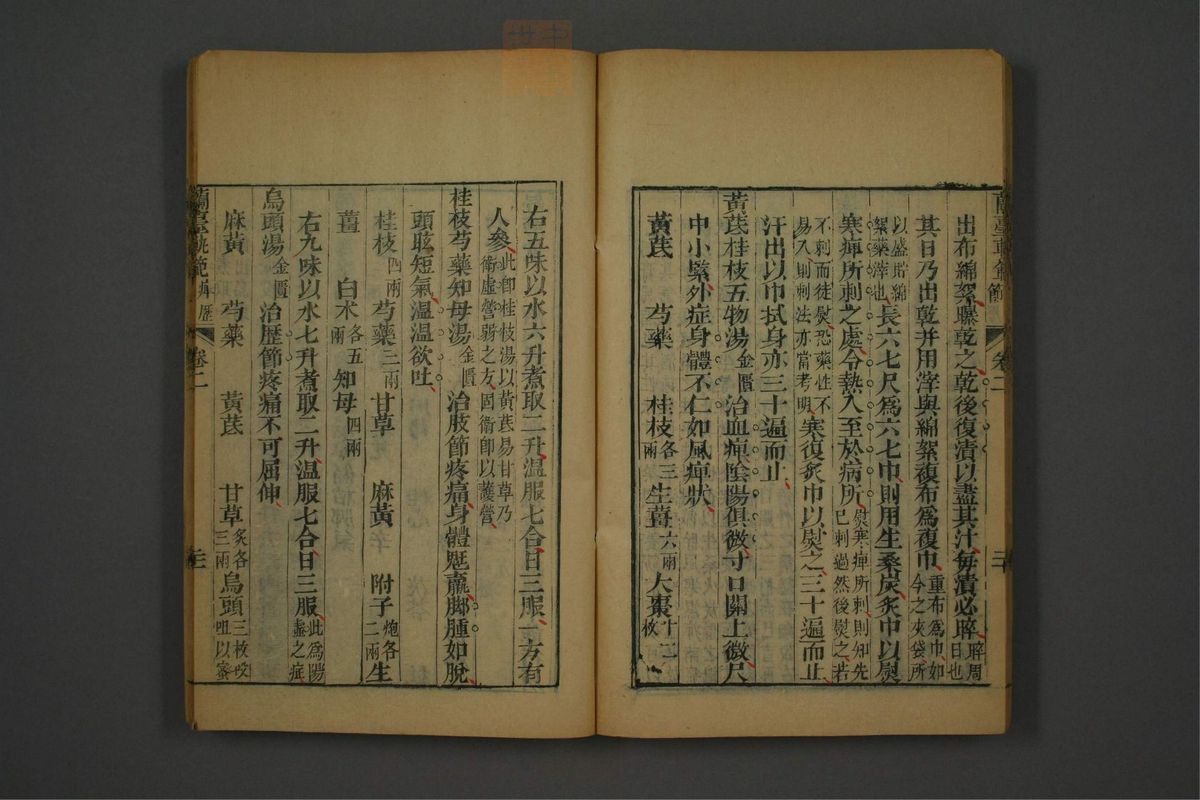 出布綿絮曝乾之乾後復漬以盡其汁每漬必晬晬周日也
其日乃出乾并用滓與綿絮複布爲複巾重布爲巾如今之夾袋所
以盛貯綿絮藥滓也長六七尺爲六七巾則用生桑炭炙巾以熨
寒痺所刺之處令熱入至於病所熨寒痺所刺則知先已刺過然後熨之若
不刺而徒熨恐藥性不易入則刺法亦當考明寒復炙巾以熨之三十遍而止
汗出以巾拭身亦三十遍而止
黃芪桂枝五物湯金匱治血痺陰陽俱微寸口關上微尺
中小緊外症身體不仁如風痺狀
黃芪 芍藥 桂枝各三兩生薑六兩大棗十二枚
右五味以水六升煮取二升溫服七合日三服一方有
人參此卽桂枝湯以黃芪易甘草乃衛虛營弱之方固衛卽以護營
桂枝芍藥知母湯金匱治肢節疼痛身體尫羸脚腫如脫
頭眩短氣溫溫欲吐
桂枝四兩芍藥三兩甘草 麻黃 附子炮各二兩生
薑 白术各五兩知母四兩
右九味以水七升煮取二升溫服七合日三服此爲陽虛之症
烏頭湯金匱治歷節疼痛不可屈伸
麻黃 芍藥 黃芪 甘草炙各三兩烏頭三枚㕮咀以蜜
蘭臺軌範 歷 卷二
卷二